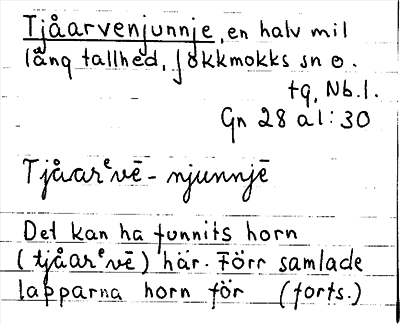 Tjåarvenjunnje, en halv mil
lång tallhed, Jokkmokks sn o.
tg, Nb.l.
Gn 28 a1:30
Tjåarᵉvē - njunnjē
Det kan ha funnits horn
(tjåarᵉvē) här. Förr samlade
lapparna horn för (forts.)